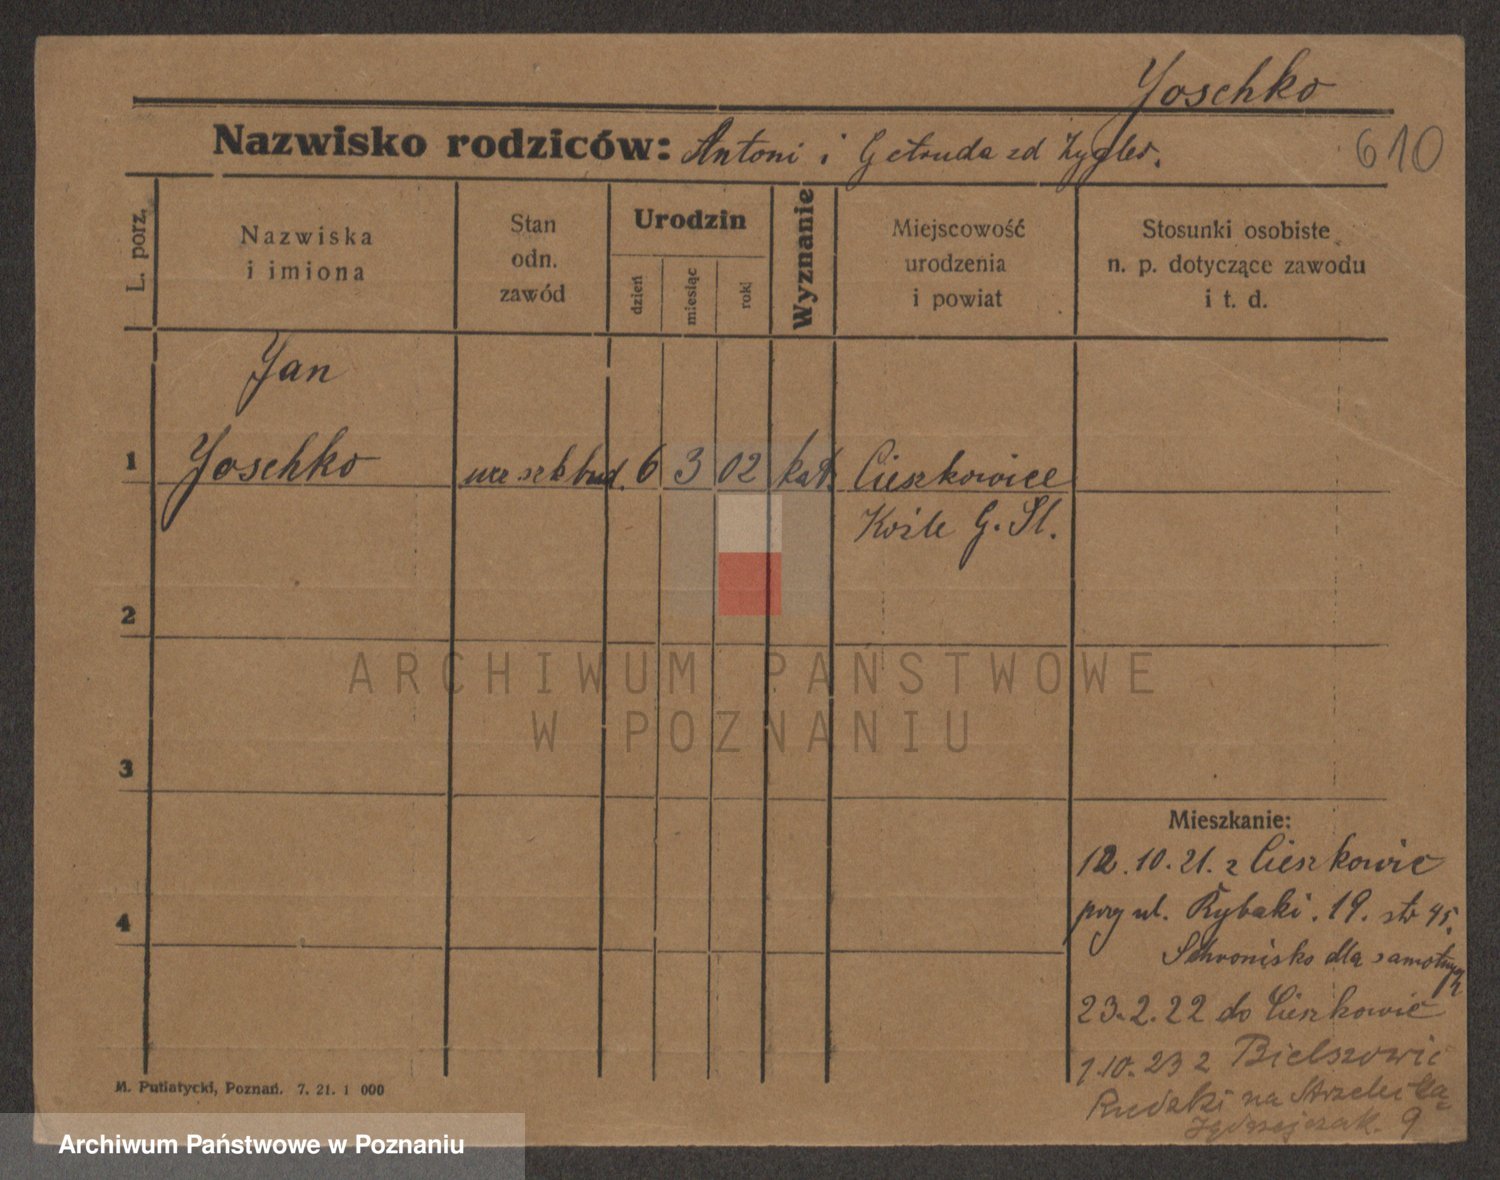 Yoschko
Nazwisko rodziców: Antoni i Getruda zd Zygler.
610
L. porz.
Nazwiska
i imiona
Stan
odn.
zawód
Urodzin
dzień
miesiąc
rok
Wyznanie
Miejscowość
urodzenia
i powiat
Stosunki osobiste
n. p. dotyczące zawodu
i t. d.
Yan
1 Yoschko ucz szk bud. 6 3 02 kat. Cieszkowice
Koźle G. Śl.
2
ARCHIWUM PAŃSTWOWE
W POZNANIU
3
Mieszkanie:
12.10.21. z Cieszkowic
przy ul. Rybaki. 19. str 45.
4
Schronisko dla samotnych
23.2.22 do Cieszkowic
1.10.23 z Bielszowic
na Strzelecką
9
M. Putiatycki, Poznań. 7. 21. 1 000
Archiwum Państwowe w Poznaniu